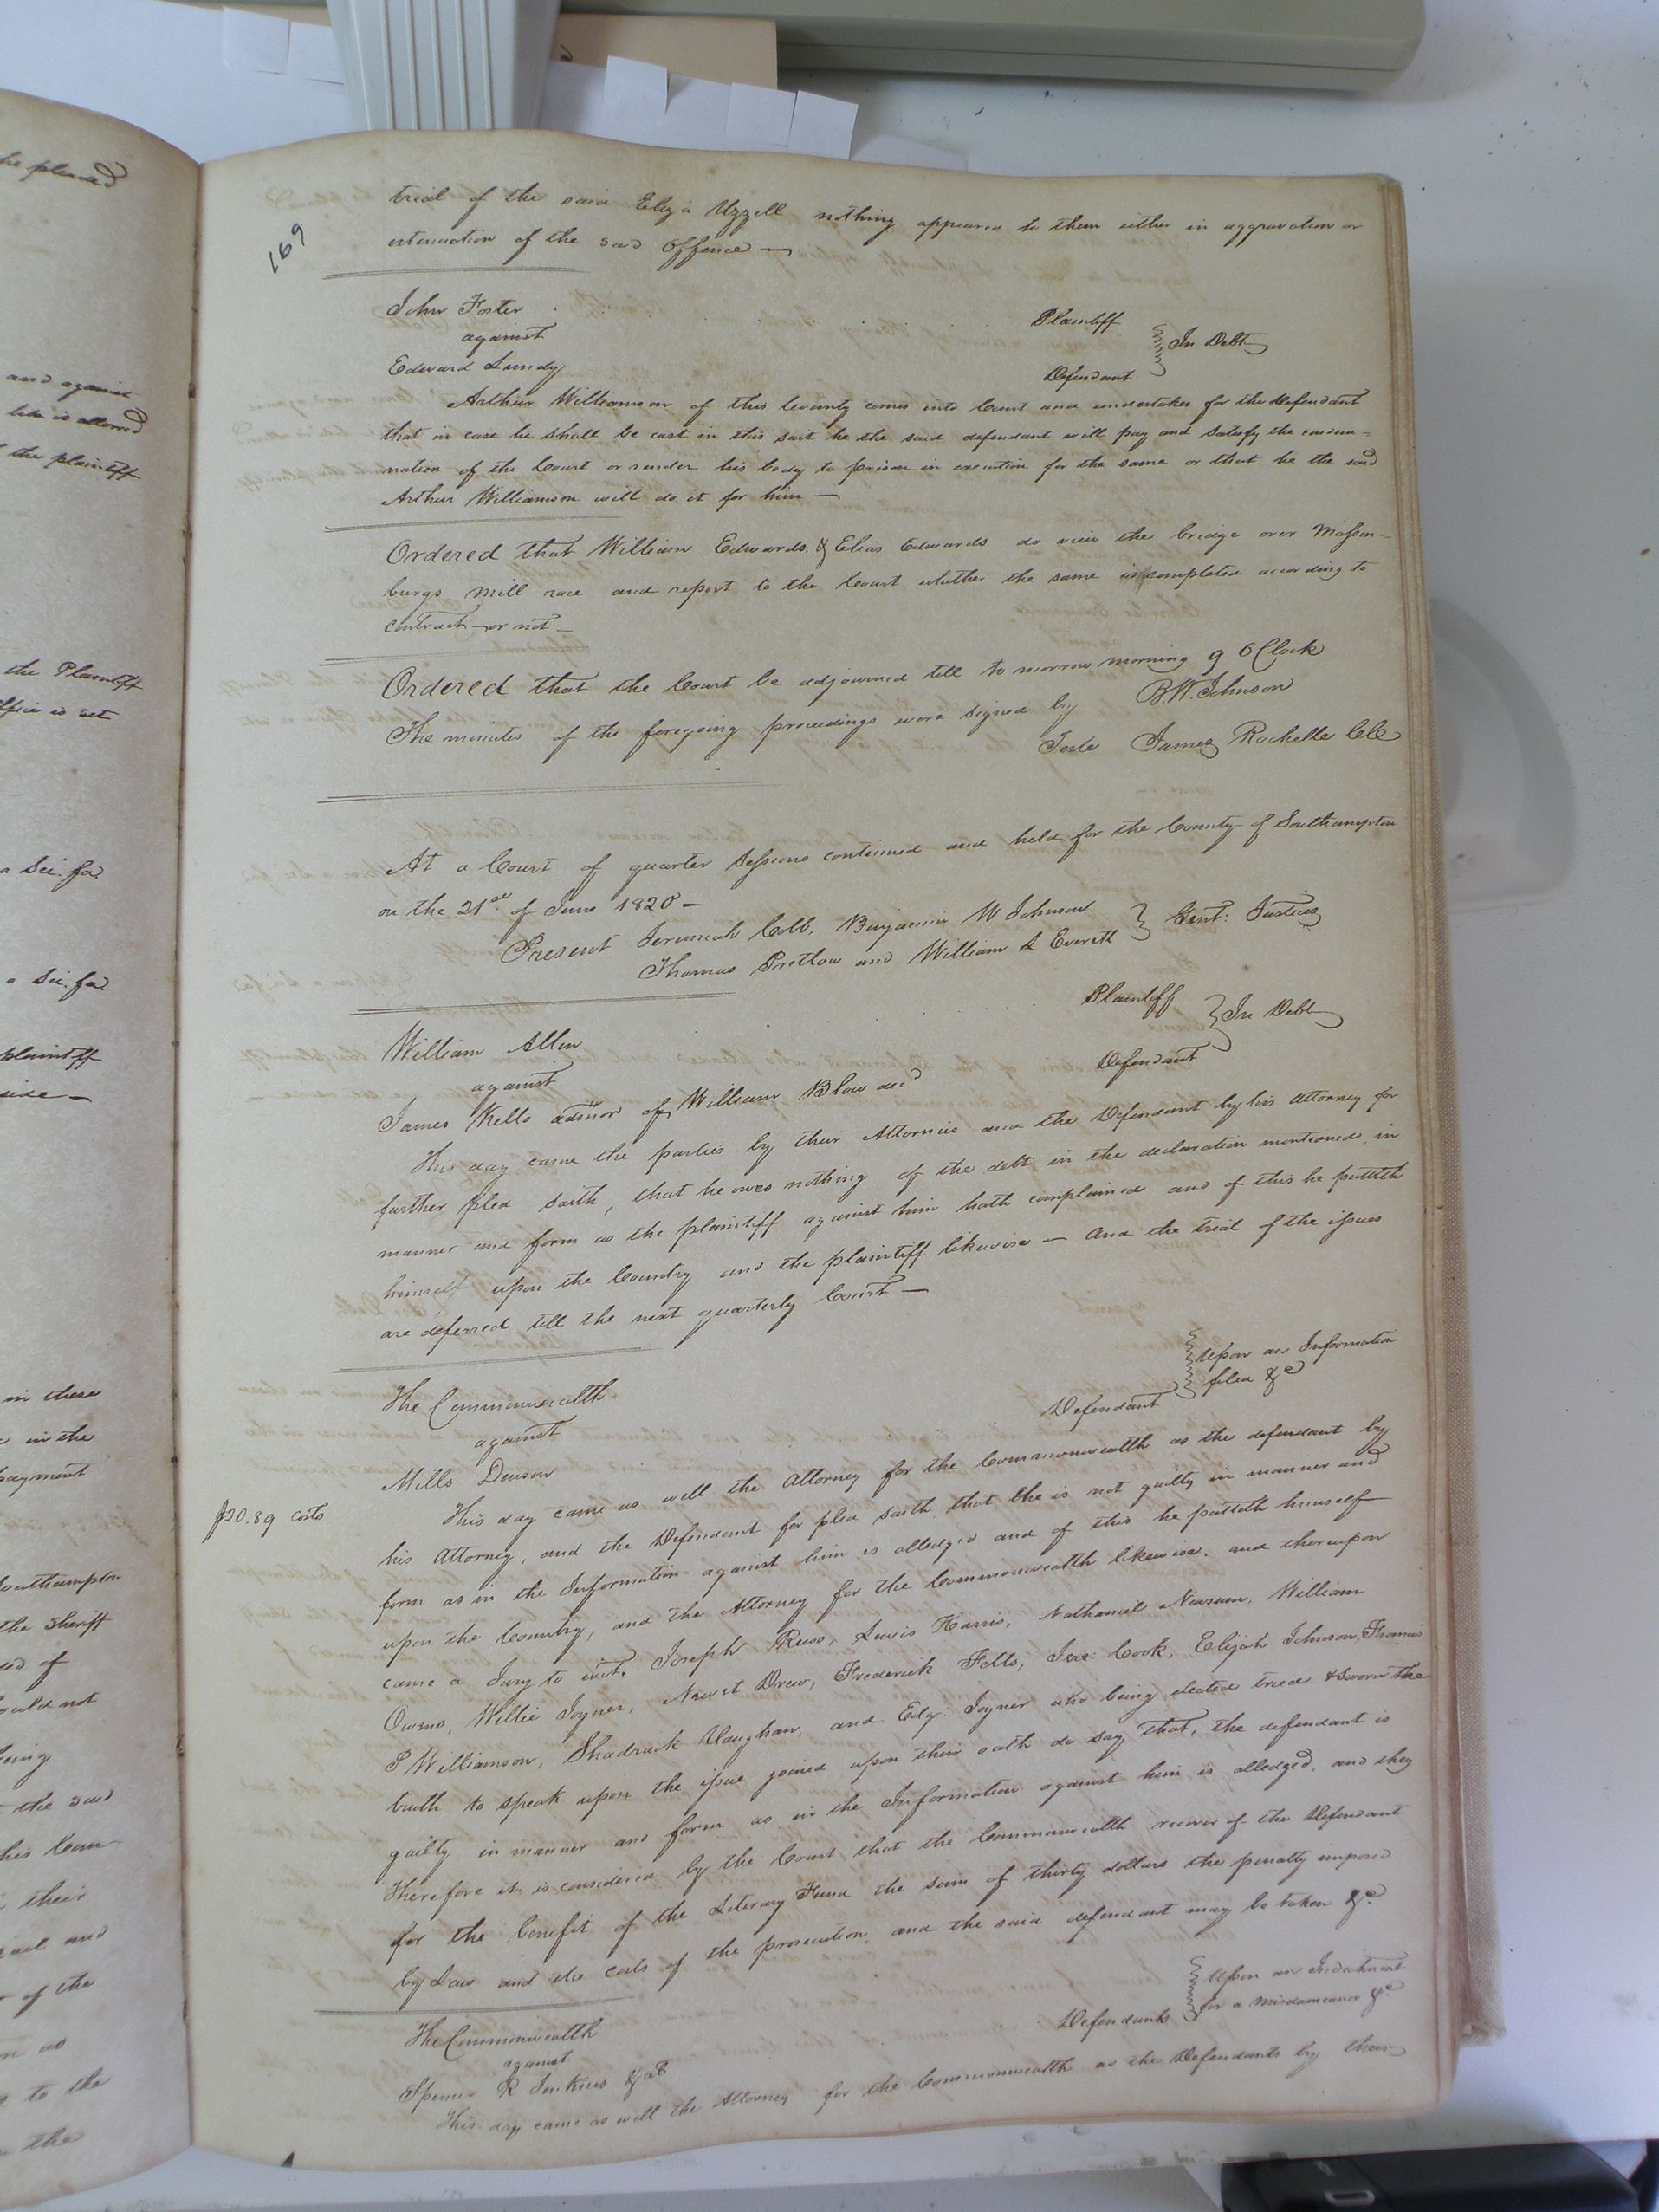 he pleaded
and against
like is allowed
the plaintiff
the Plaintiff
office is set
a Sci. fa.
a Sci. fa.
plaintiff
side —
in these
in the
payment
Southampton
the Sheriff
ed of
ould not
being
the said
his loan
their
jail and
of the
as
to the
the
169
trial of the said Eliza Uzzell nothing appeared to them either in aggravation or
extenuation of the said offence —
John Foster Plaintiff
against In Debt
Edward Lundy Defendant
Arthur Williamson of this County comes into Court and undertakes for the defendant
that in case he shall be cast in this suit he the said defendant will pay and satisfy the condem=
nation of the Court or render his body to prison in execution for the same or that he the said
Arthur Williamson will do it for him —
Ordered that William Edwards & Elias Edwards do view the bridge over Massen=
burgs mill race and report to the Court whether the same is completed according to
contract or not —
Ordered that the Court be adjourned till to morrow morning 9 O Clock
The minutes of the foregoing proceedings were signed by B. W. Johnson
Teste James Rochelle ClC
At a Court of quarter Sessions continued and held for the County of Southampton
on the 21st of June 1820 —
Present Jeremiah Cobb, Benjamin W Johnson
Thomas Pretlow and William L Everett Gent: Justices
William Allen Plaintiff
against In Debt
James Kello admor of William Blow decd Defendant
This day came the parties by their Attornies and the Defendant by his attorney for
further plea saith, that he owes nothing of the debt in the declaration mentioned, in
manner and form as the plaintiff against him hath complained and of this he putteth
himself upon the Country and the plaintiff likewise — and the trial of the issues
are deferred till the next quarterly Court —
The Commonwealth Upon an Information
against plea &c
Mills Denson Defendant
$20.89 costs
This day came as well the Attorney for the Commonwealth as the defendant by
his Attorney, and the Defendant for plea saith that he is not guilty in manner and
form as in the Information against him is alledged and of this he putteth himself
upon the Country, and the Attorney for the Commonwealth likewise. and thereupon
came a Jury to wit. Joseph Ruso, Lewis Harris, Nathaniel Newsum, William
Owens, Willie Joyner, Newit Drew, Frederick Fells, Jere: Cook, Elijah Johnson, Francis
P Williamson, Shadrack Vaughan, and Edy: Joyner who being elected tried & sworn the
truth to speak upon the issue joined upon their oath do say that, the defendant is
guilty in manner and form as in the Information against him is alledged, and they
Therefore it is considered by the Court that the Commonwealth recover of the Defendant
for the benefit of the Literary Fund the sum of thirty dollars the penalty imposed
by Law and the costs of the prosecution, and the said defendant may be taken &c.
The Commonwealth Upon an Indictment
against for a misdemeanor &c
Spencer R Jenkins & al Defendants
This day came as well the Attorney for the Commonwealth as the Defendants by their